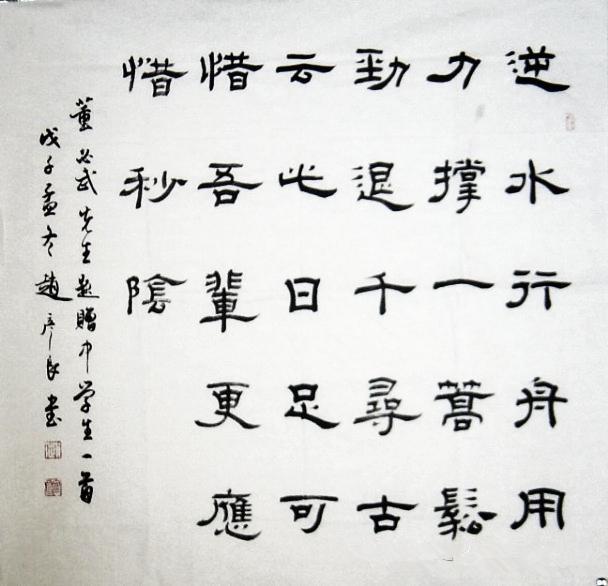 逆水行舟用
力撐一篙鬆
勁退千尋古
云此日足可
惜吾輩更應
惜秒陰
董必武先生題贈中學生一首
戊子孟冬趙彥良書